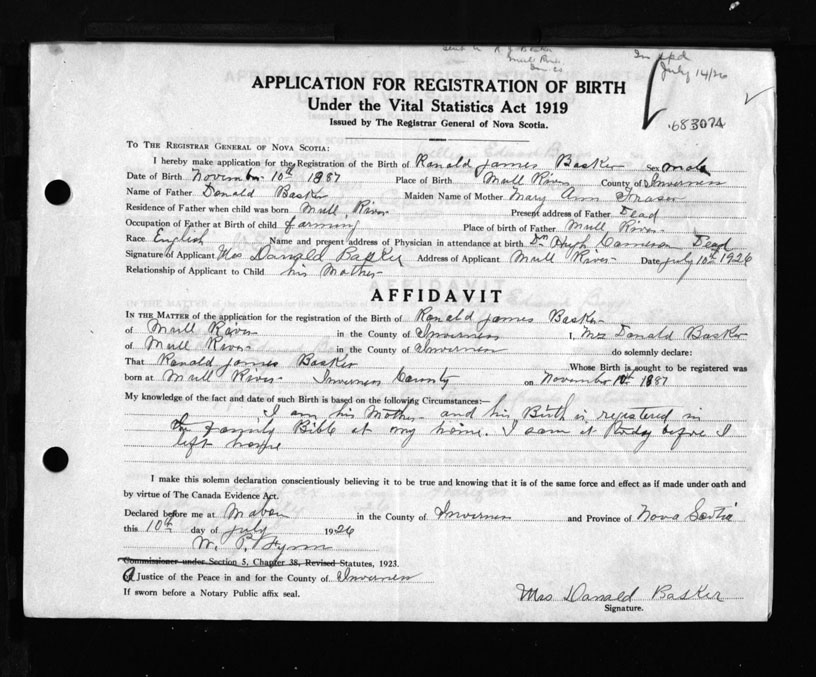 July 14/26
APPLICATION FOR REGISTRATION OF BIRTH
Under the Vital Statistics Act 1919
Issued by The Registrar General of Nova Scotia.
683074
TO THE REGISTRAR GENERAL OF NOVA SCOTIA:
I hereby make application for the Registration of the Birth of Ranald James Basker Sex male
Date of Birth November 10th 1887 Place of Birth Mull River County of Inverness
Name of Father Donald Basker Maiden Name of Mother Mary Ann Fraser
Residence of Father when child was born Mull River Present address of Father Dead
Occupation of Father at Birth of child farming Place of birth of Father Mull River
Race English Name and present address of Physician in attendance at birth Dr Hugh Cameron Dead
Signature of Applicant Mrs Donald Basker Address of Applicant Mull River Date July 10th 1926
Relationship of Applicant to Child his Mother
AFFIDAVIT
IN THE MATTER of the application for the registration of the Birth of Ranald James Basker
of Mull River in the County of Inverness I, Mrs Donald Basker
of Mull River in the County of Inverness do solemnly declare:
That Ranald James Basker Whose Birth is sought to be registered was
born at Mull River Inverness County on November 10th 1887
My knowledge of the fact and date of such Birth is based on the following Circumstances:—
I am his Mother and his Birth is registered in
the Family Bible at my home. I saw it today before I
left home
I make this solemn declaration conscientiously believing it to be true and knowing that it is of the same force and effect as if made under oath and
by virtue of The Canada Evidence Act.
Declared before me at Mabou in the County of Inverness and Province of Nova Scotia
this 10th day of July 1926
W. P.
Commissioner under Section 5, Chapter 38, Revised Statutes, 1923.
A Justice of the Peace in and for the County of Inverness
If sworn before a Notary Public affix seal.
Mrs Donald Basker
Signature.